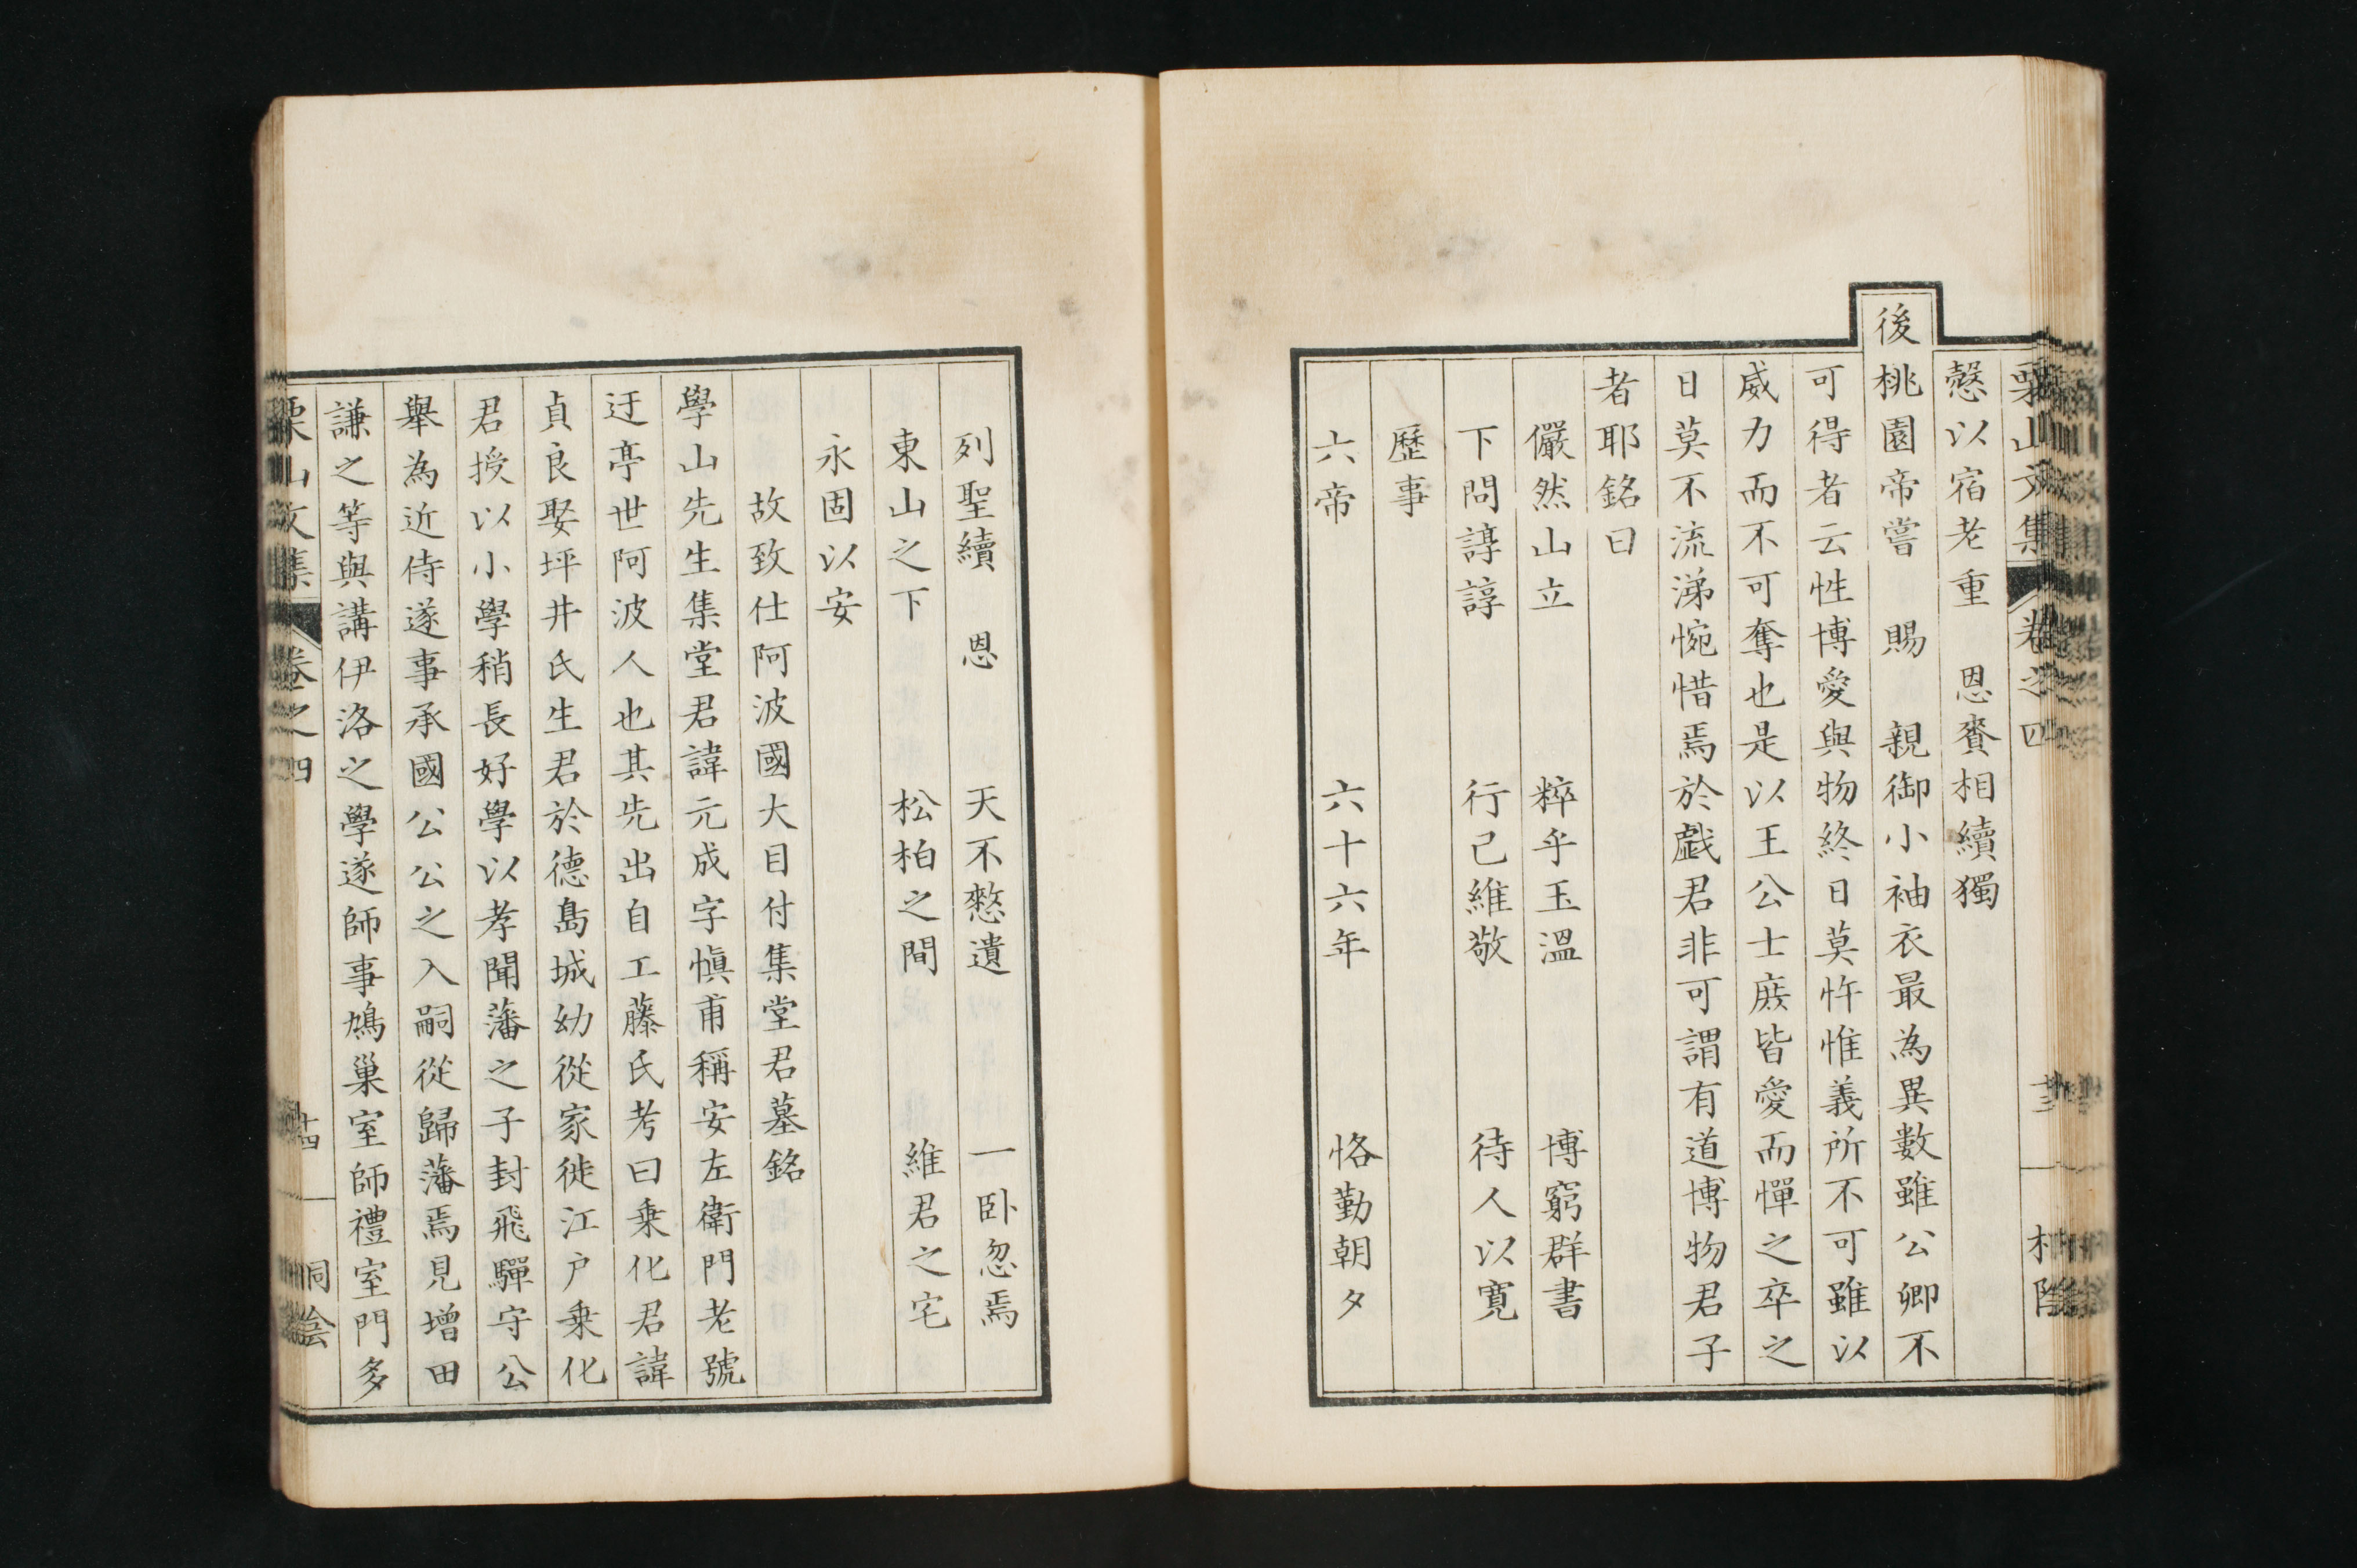 栗山文集 卷之四 十三
愨以宿老重 恩賚相續獨
後桃園帝嘗 賜 親御小袖衣最為異數雖公卿不
可得者云性博愛與物終日莫忤惟義所不可雖以
威力而不可奪也是以王公士庶皆愛而憚之卒之
日莫不流涕惋惜焉於戲君非可謂有道博物君子
者耶銘曰
儼然山立 粹乎玉溫 博窮群書
下問諄諄 行己維敬 待人以寬
歷事
六帝 六十六年 恪勤朝夕
列聖續 恩 天不憖遺 一卧忽焉
東山之下 松柏之間 維君之宅
永固以安
故致仕阿波國大目付集堂君墓銘
學山先生集堂君諱元成字愼甫稱安左衛門老號
迂亭世阿波人也其先出自工藤氏考曰乗化君諱
貞良娶坪井氏生君於德島城幼從家徙江戶乗化
君授以小學稍長好學以孝聞藩之子封飛驒守公
舉為近侍遂事承國公公之入嗣從歸藩焉見增田
謙之等與講伊洛之學遂師事鳩巢室師禮室門多
栗山文集 卷之四 十四 桐陰